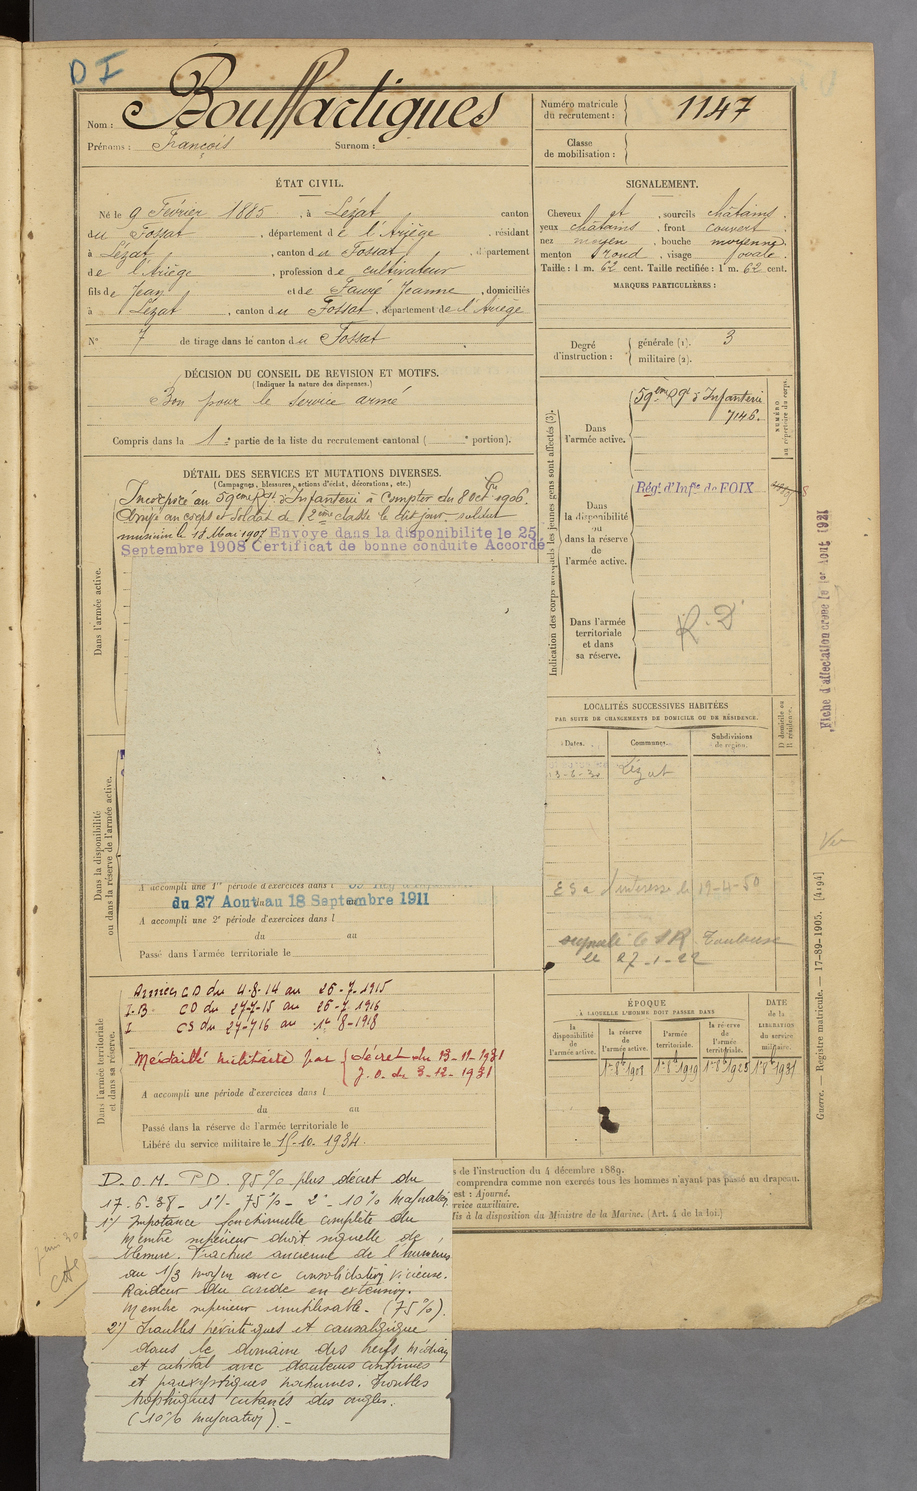 D I
Nom : Bouffartigues
Prénoms : François Surnom :
Numéro matricule du recrutement : 1147
Classe de mobilisation :
ÉTAT CIVIL.
Né le 9 Février 1885, à Lézat canton
du Fossat, département de l'Ariège, résidant
à Lézat, canton du Fossat, département
de l'Ariège, profession de cultivateur
fils de Jean et de Fauré Jeanne, domiciliés
à Lézat, canton du Fossat, département de l'Ariège
N° 7 de tirage dans le canton du Fossat
SIGNALEMENT.
Cheveux et, sourcils châtains.
yeux châtains, front couvert.
nez moyen, bouche moyenne,
menton rond, visage ovale.
Taille : 1 m. 62 cent. Taille rectifiée : 1 m. 62 cent.
MARQUES PARTICULIÈRES :
Degré d'instruction : générale (1). 3
militaire (2).
DÉCISION DU CONSEIL DE REVISION ET MOTIFS.
(Indiquer la nature des dispenses.)
Bon pour le service armé
Compris dans la 1e partie de la liste du recrutement cantonal ( e portion).
DÉTAIL DES SERVICES ET MUTATIONS DIVERSES.
(Campagnes, blessures, actions d'éclat, décorations, etc.)
Incorporé au 59ème Rgt d'Infanterie à compter du 8 Oct bre 1906.
Arrivé au corps et soldat de 2ème classe le dit jour. soldat
musicien le 18 Mai 1907 Envoye dans la disponibilite le 25
Septembre 1908 Certificat de bonne conduite Accordé
Dans l'armée active.
Dans la disponibilité
ou dans la réserve de l'armée active.
A accompli une 1re période d'exercices dans l
du 27 Aout au 18 Septembre 1911
A accompli une 2e période d'exercices dans l
du au
Passé dans l'armée territoriale le
Dans l'armée territoriale
et dans sa réserve.
Armées CD du 4-8-14 au 26-7-1915
I.B. CD du 27-7-15 au 26-7 1916
I CS du 27-7-16 au 1er 8-1918
Médaillé militaire par décret du 13-11-1931
J.O. du 3-12-1931
A accompli une période d'exercices dans l
du au
Passé dans la réserve de l'armée territoriale le
Libéré du service militaire le 15-10-1934.
Indication des corps auxquels les jeunes gens sont affectés (3).
NUMÉRO au répertoire du corps.
Dans l'armée active.
59ème Rgt d'Infanterie
7146.
Dans la disponibilité ou dans la réserve de l'armée active.
Rég. d'Inf.ie de FOIX
Dans l'armée territoriale et dans sa réserve.
R.D
LOCALITÉS SUCCESSIVES HABITÉES
PAR SUITE DE CHANGEMENTS DE DOMICILE OU DE RÉSIDENCE.
Dates. Communes. Subdivisions de région. D domicile ou R résidence.
13-6-30 Lézat
19-4-50
Toulouse
le 27-1-22
ÉPOQUE
À LAQUELLE L'HOMME DOIT PASSER DANS
DATE de la LIBÉRATION du service militaire.
la disponibilité de l'armée active.
la réserve de l'armée active.
l'armée territoriale.
la réserve de l'armée territoriale.
1er 8b 1908 1er 8b 1919 1er 8b 1925 1er 8b 1931
Fiche d'affectation créée le 1er Aout 1921
Vu
Guerre. — Registre matricule. — 17-89-1905. [4194]
s de l'instruction du 4 décembre 1889.
comprendra comme non exercés tous les hommes n'ayant pas passé au drapeau.
est : Ajourné.
rvice auxiliaire.
Mis à la disposition du Ministre de la Marine. (Art. 4 de la loi.)
D.O.M. P.D. 85% plus décret du
17-6-38 - 1°/- 75% - 2° - 10% majoration
1°/ Impotance fonctionnelle complète du
Membre supérieur droit séquelle de
blessure. Fracture ancienne de l'humerus
au 1/3 moyen avec consolidation vicieuse.
Raideur du coude en extension.
Membre supérieur inutilisable. (75%).
2°/ Troubles névritiques et causalgique
dans le domaine des nerfs médian
et cubital avec douleurs continues
et paroxystiques nocturnes. Troubles
trophiques cutanés des ongles.
(10% majoration).-